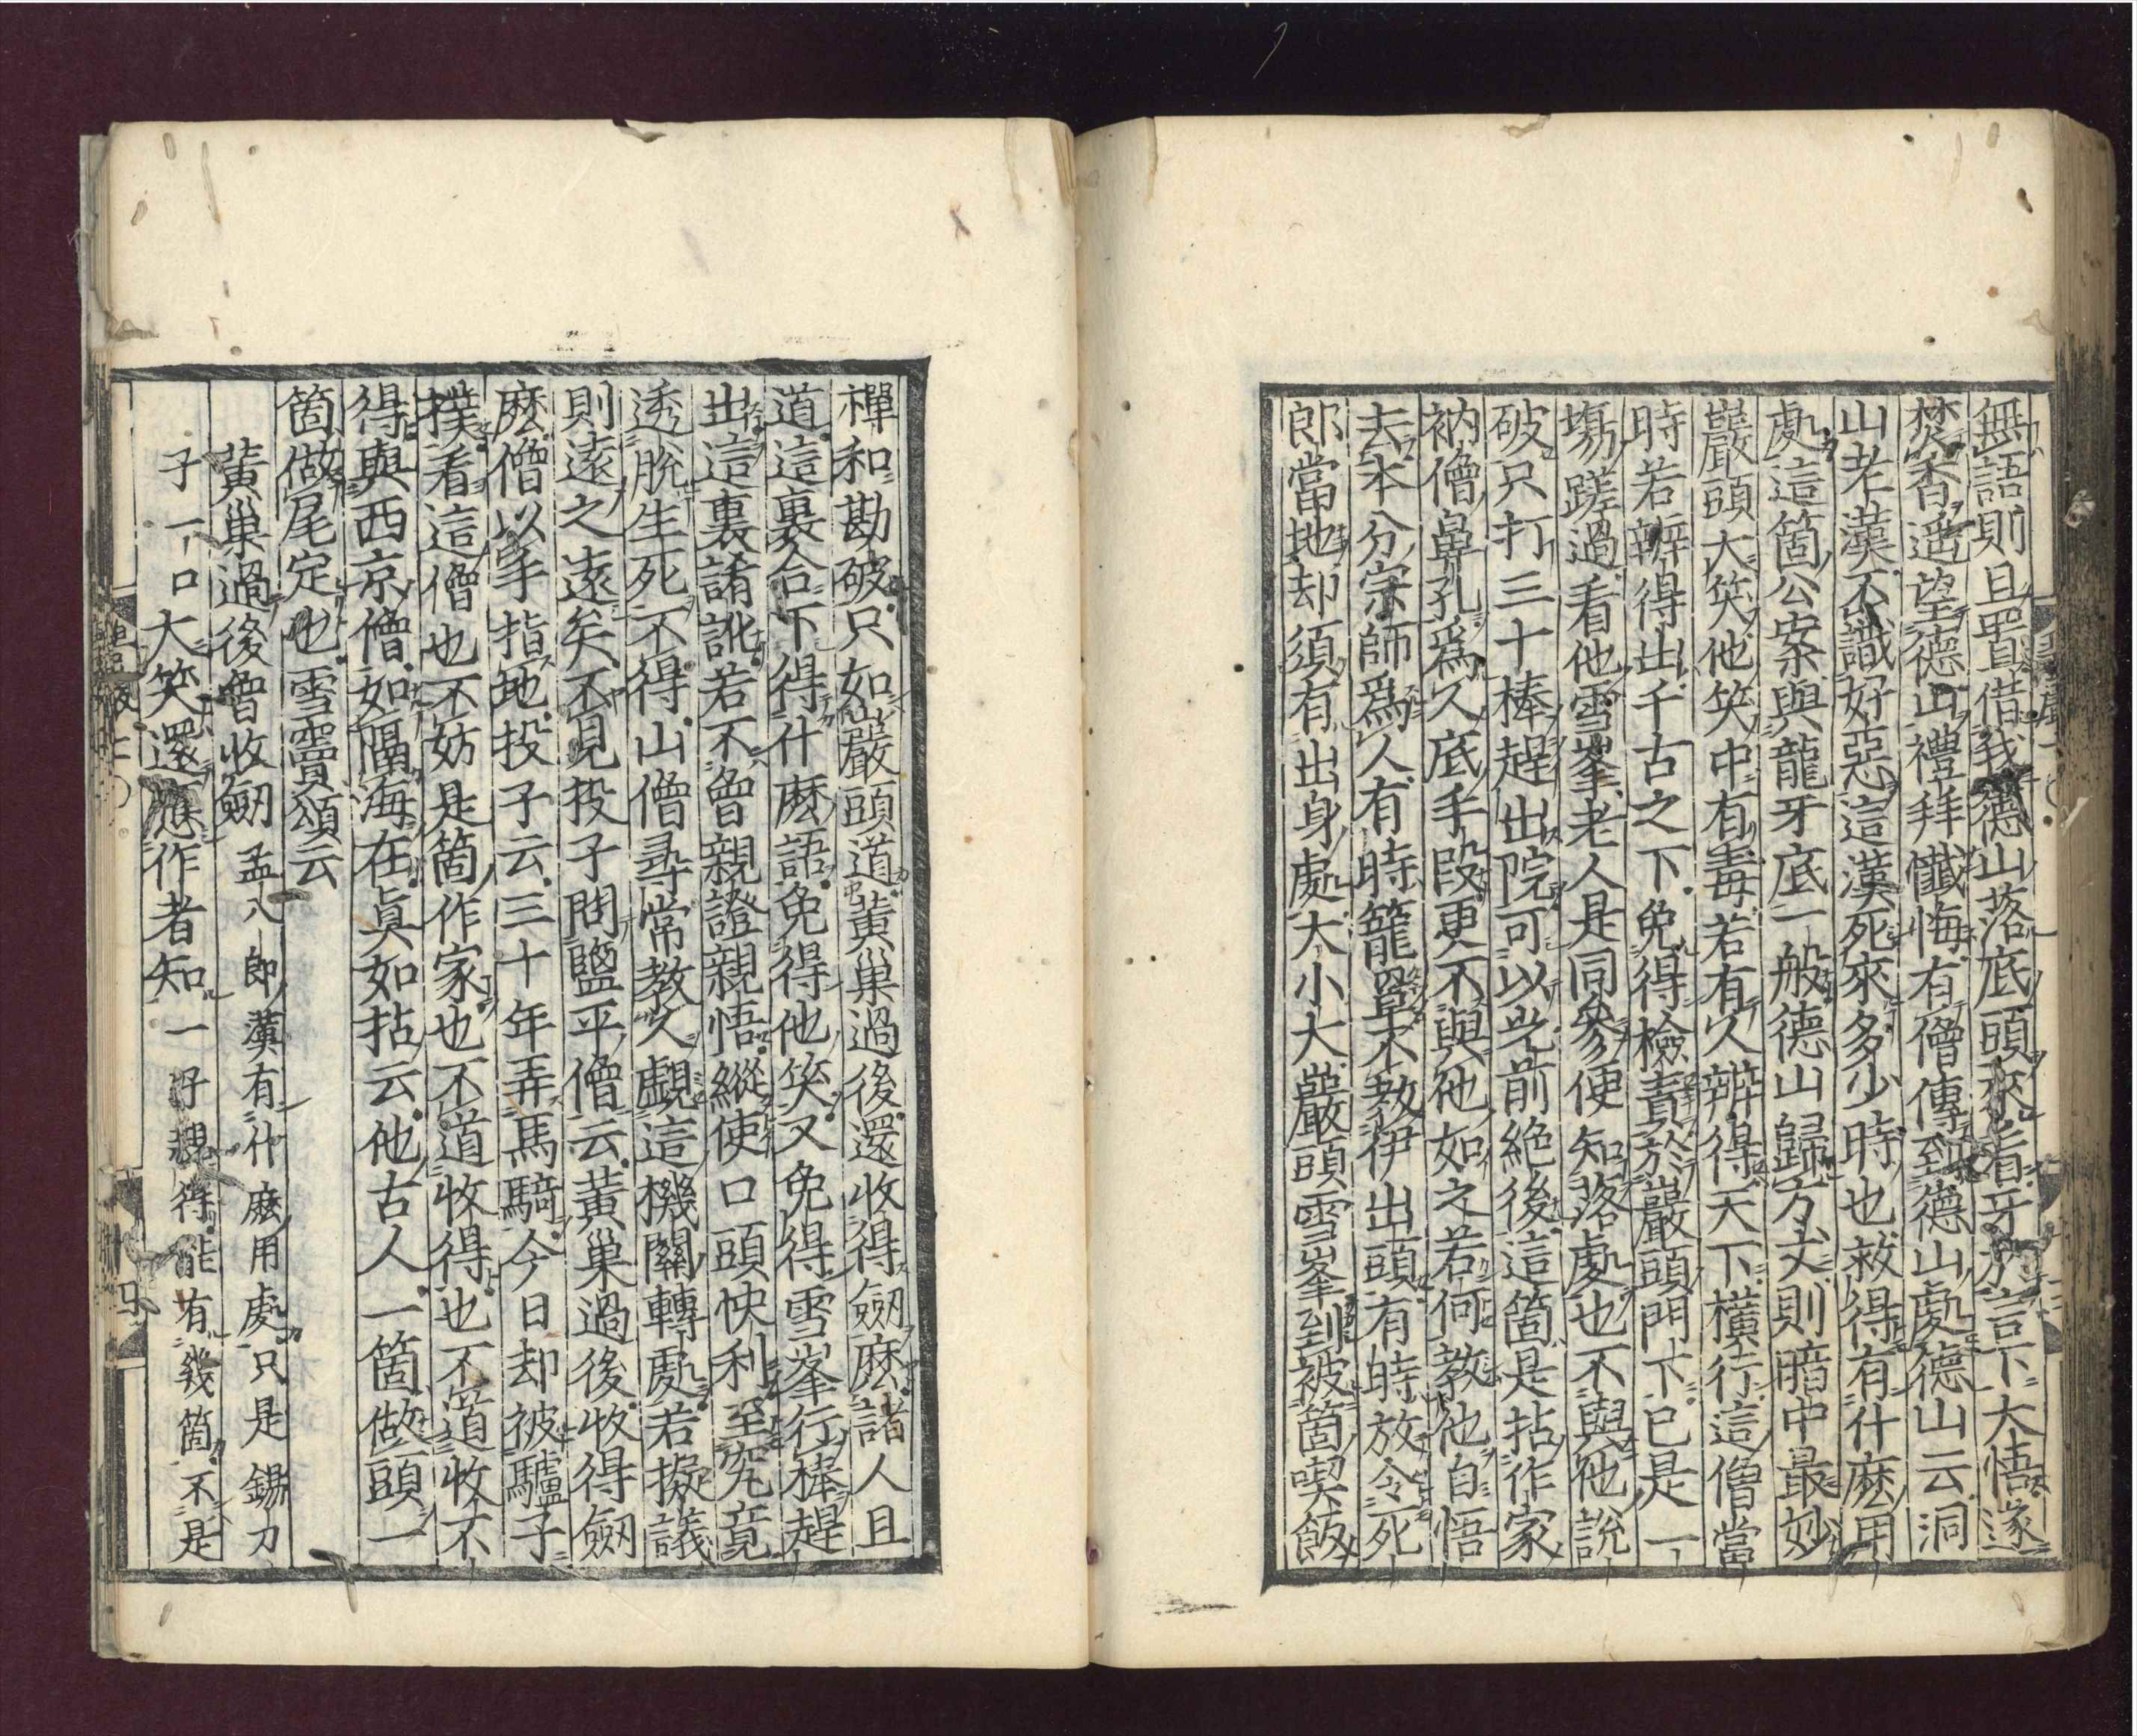 無語則且置借我德山落底頭來看牙於言下大悟遂
焚香遥望德山禮拜懺悔有僧傳到德山處德山云洞
山老漢不識好惡這漢死來多少時也救得有什麽用
處這箇公案與龍牙底一般德山歸方丈則暗中最妙
巖頭大笑他笑中有毒若有人辨得天下橫行這僧當
時若辨得出千古之下免得檢責於巖頭門下已是一
塲蹉過看他雪峯老人是同參便知落處也不與他說
破只打三十棒趕出院可以光前絶後這箇是拈作家
衲僧鼻孔爲人底手段更不與他如之若何教他自悟
去本分宗師爲人有時籠罩不教伊出頭有時放令死
郎當地却須有出身處大小大巖頭雪峯到被箇喫飯
禪和勘破只如巖頭道黃巢過後還收得劒麽諸人且
道這裏合下得什麽語免得他笑又免得雪峯行棒趕
出這裏誵訛若不曾親證親悟縱使口頭快利至究竟
透脫生死不得山僧尋常教人覷這機關轉處若擬議
則遠之遠矣不見投子問鹽平僧云黃巢過後收得劒
麽僧以手指地投子云三十年弄馬騎今日却被驢子
撲看這僧也不妨是箇作家也不道收得也不道收不
得與西京僧如隔海在眞如拈云他古人一箇做頭一
箇做尾定也雪竇頌云
黃巢過後曾收劒孟八郎漢有什麽用處只是錫刀
子一口大笑還應作者知一子親得能有幾箇不是